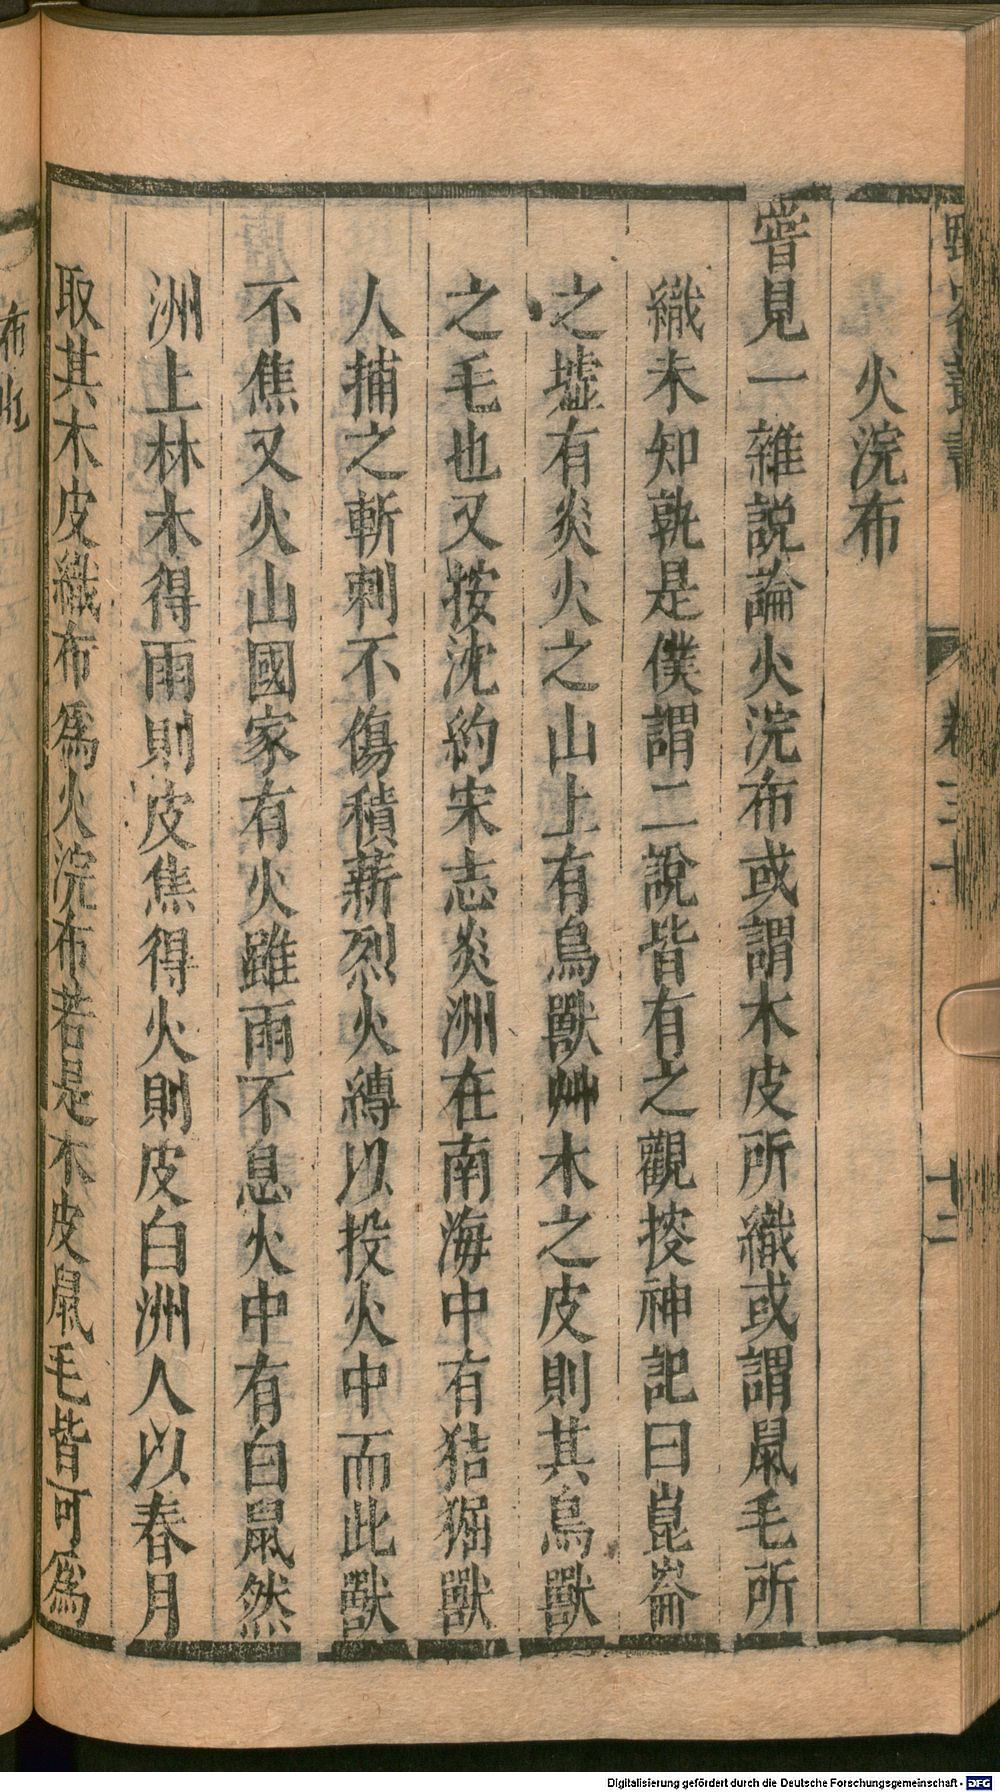 野客叢書 卷三十 十二
火浣布
嘗見一雜説論火浣布或謂木皮所織或謂鼠毛所
織未知孰是僕謂二説皆有之觀搜神記曰崑崙
之墟有炎火之山山上有鳥獸艸木之皮則其鳥獸
之毛也又按沈約宋志炎洲在南海中有狤獝獸
人捕之斬刺不傷積薪烈火縛以投火中而此獸
不焦又火山國家有火雖雨不息火中有白鼠然
洲上林木得雨則皮焦得火則皮白洲人以春月
取其木皮織布爲火浣布若是木皮鼠毛皆可爲
布
Digitalisierung gefördert durch die Deutsche Forschungsgemeinschaft - DFG